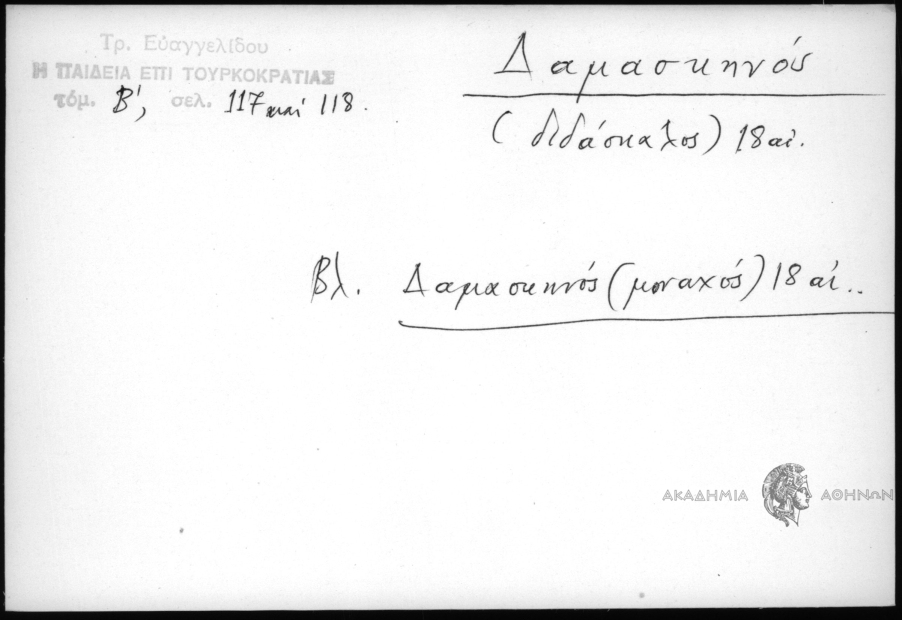 Τρ. Εὐαγγελίδου
Η ΠΑΙΔΕΙΑ ΕΠΙ ΤΟΥΡΚΟΚΡΑΤΙΑΣ
τόμ. Β', σελ. 117 καί 118.
Δαμασκηνός
(διδάσκαλος) 18 αἰ.
Βλ. Δαμασκηνός (μοναχός) 18 αἰ..
ΑΚΑΔΗΜΙΑ ΑΘΗΝΩΝ